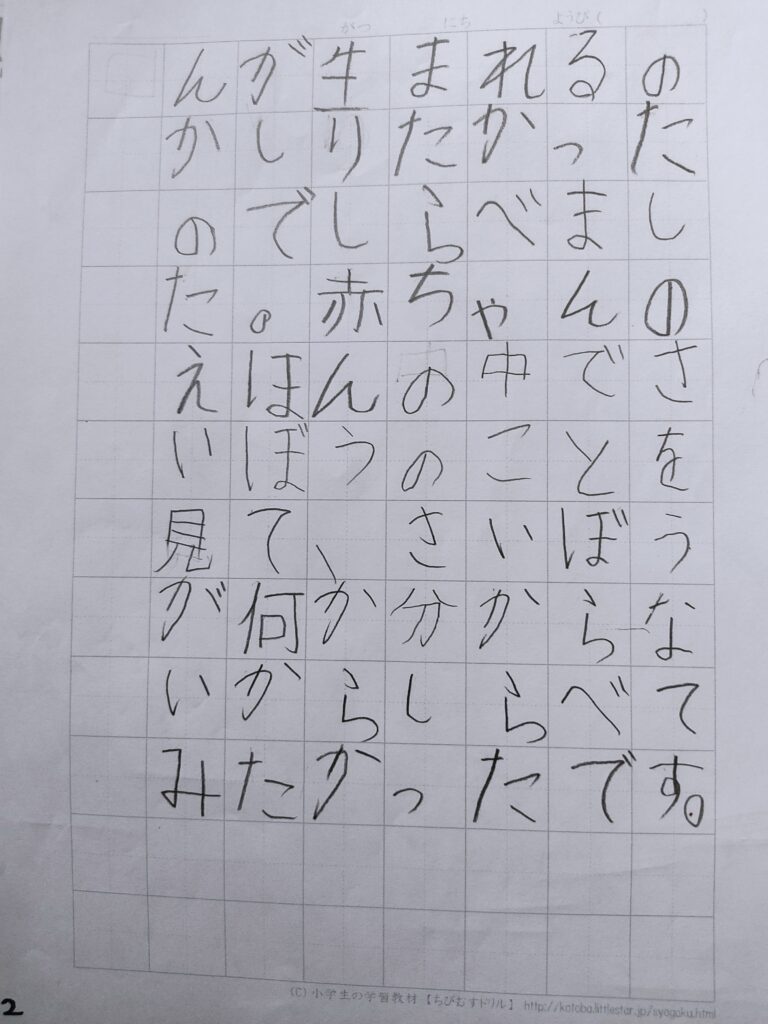 がつ にち ようび( )
んが生まれるの
かしりたかった
のでしらべまし
た。赤ちゃんの
えほんの中でさ
いぼうのことを
見て、さいぼう
が何か分からな
いからしらべて
みたかったです。
(C) 小学生の学習教材【ちびむすドリル】 http://kotoba.littlestar.jp/syogaku.html
2